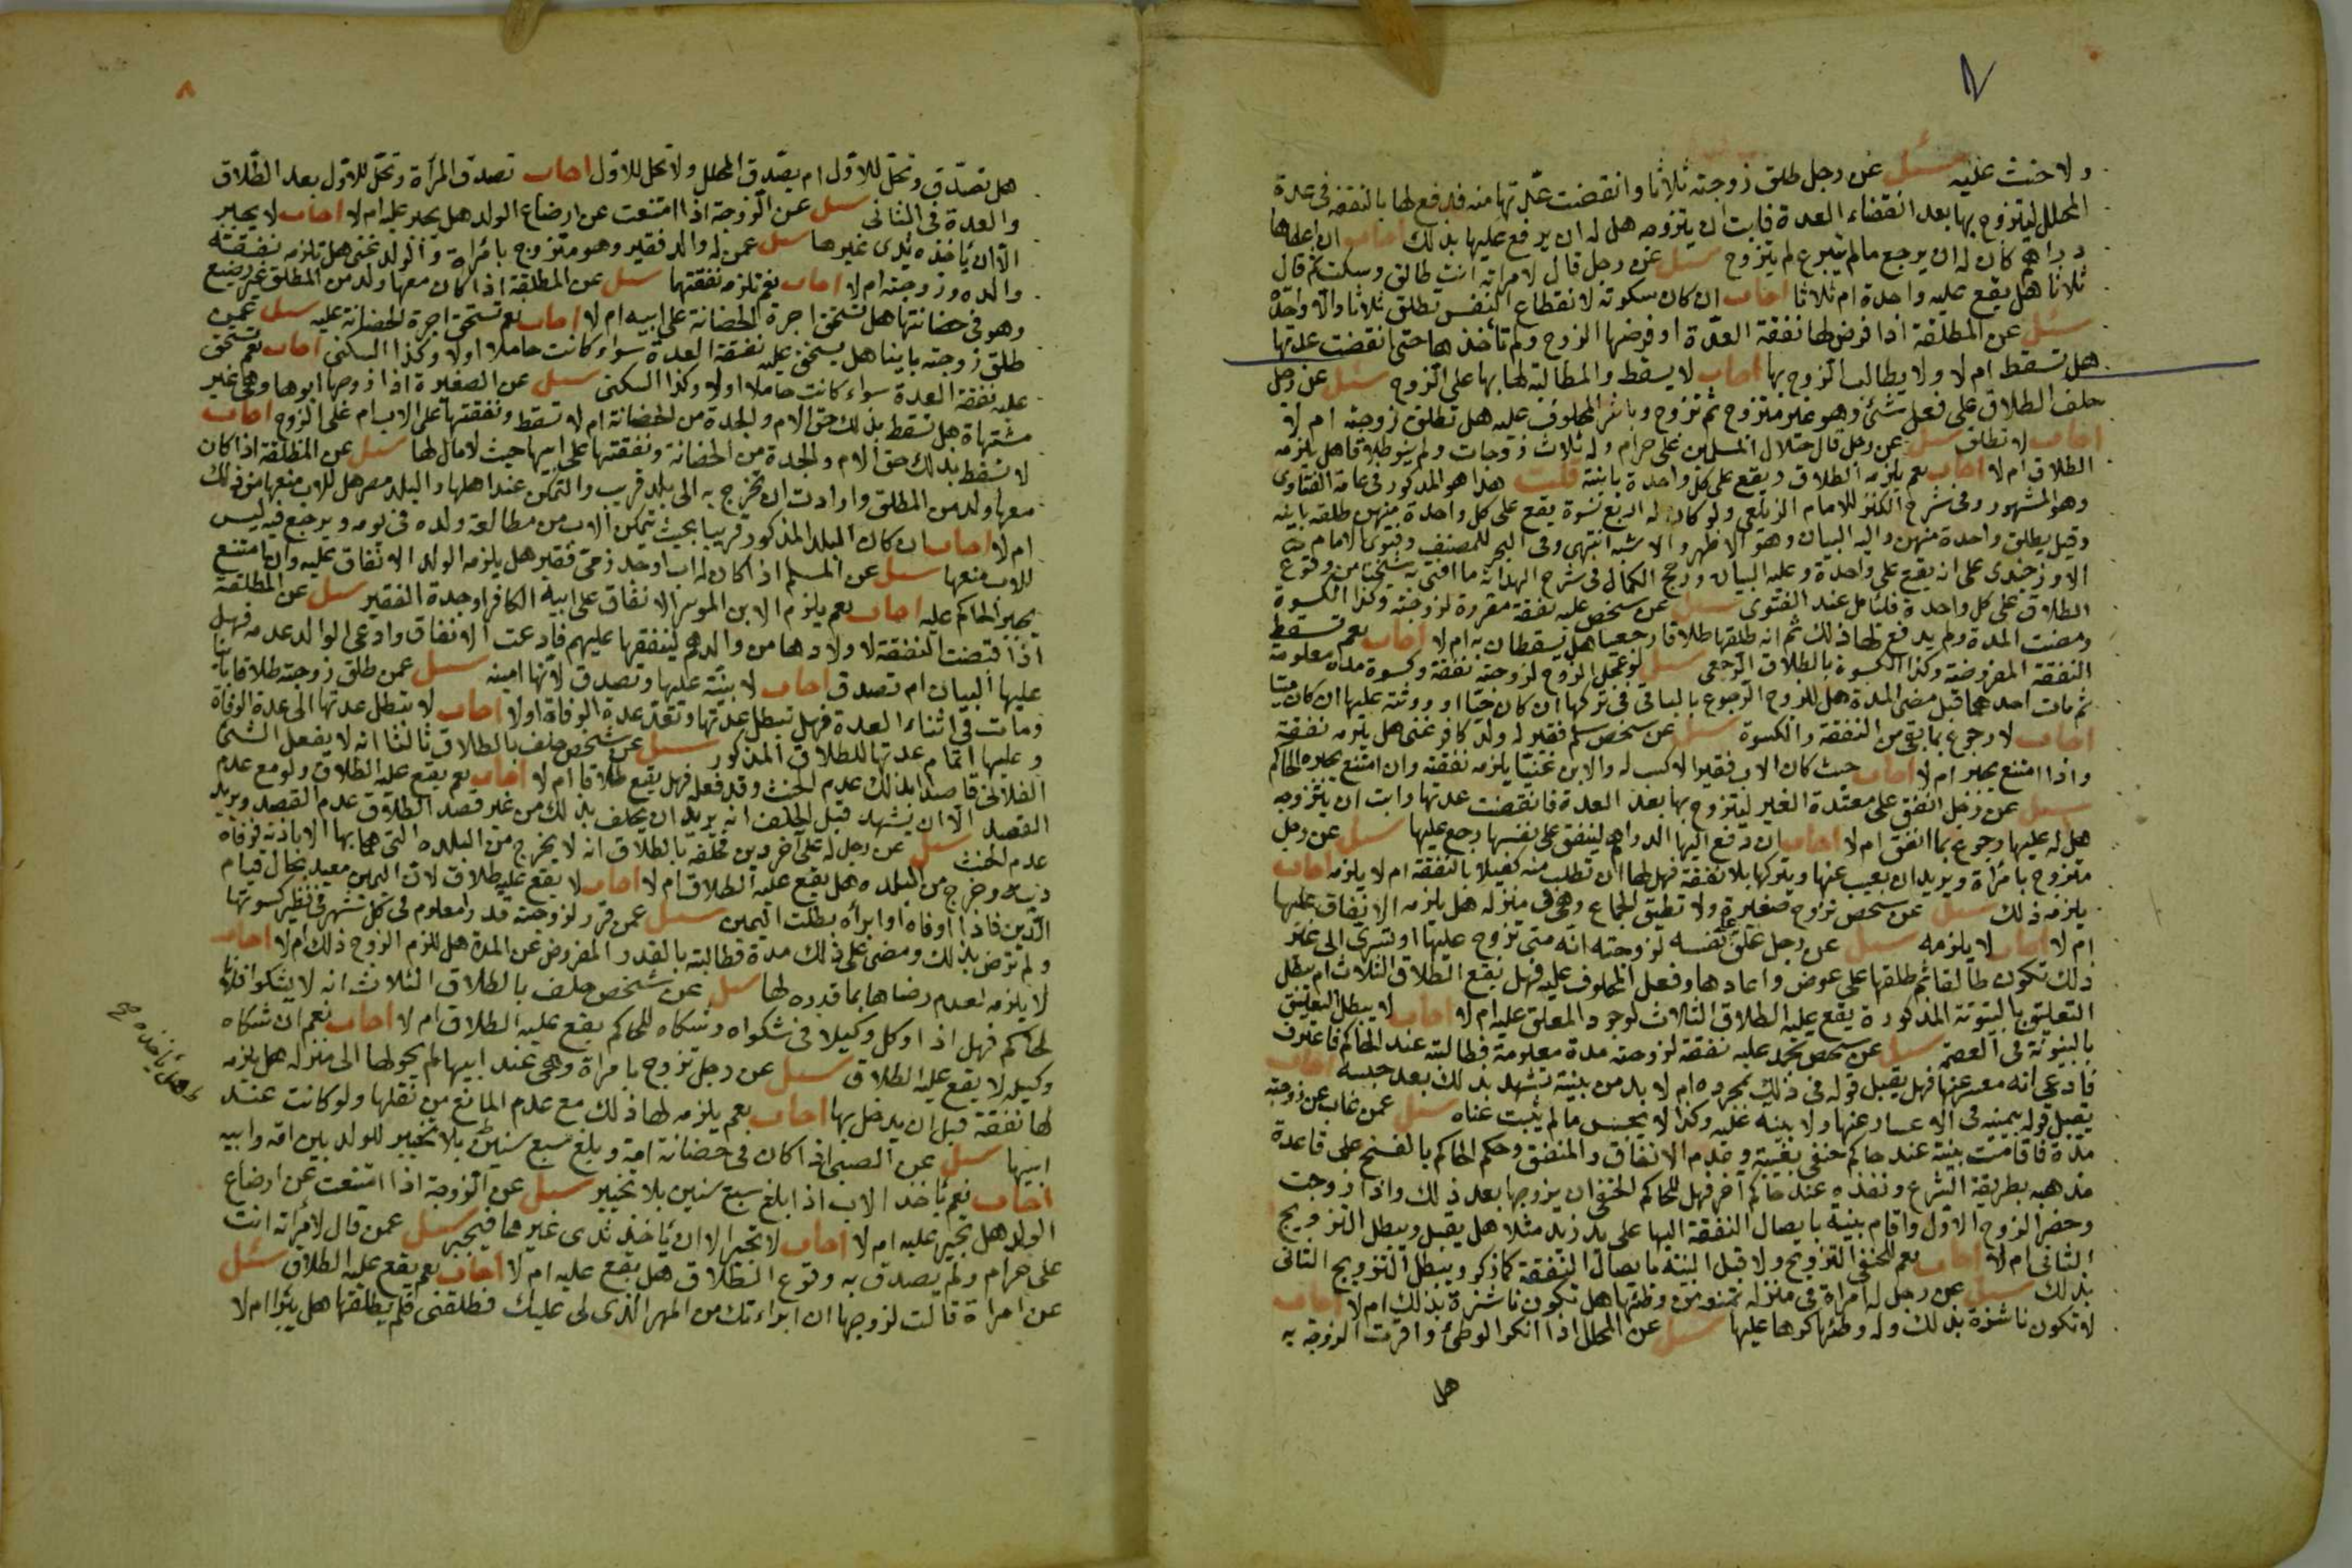 ٧
ولا حنث عليه سئل عن رجل طلق زوجته ثلاثا وانقضت عدتها منه فدفع لها بالنفقة في عدة
المحلل ليتزوج بها بعد انقضاء العدة فابت ان يتزوجه هل له ان يرفع عليها بذلك اجاب ان اعطاها
دراهم كان له ان يرجع مالم يتبرع لم يتزوج سئل عن رجل قال لامراته انت طالق وسكت ثم قال
ثلاثا هل يقع عليه واحدة ام ثلاثا اجاب ان كان سكوته لانقطاع النفس تطلق ثلاثا والا واحدة
سئل عن المطلقة اذا فرض لها نفقة العدة او فرضها الزوج ولم تأخذها حتى انقضت عدتها
هل تسقط ام لا ولا يطالب الزوج بها اجاب لا يسقط والمطالبة لها بها على الزوج سئل عن رجل
حلف الطلاق على فعل شئ وهو غير متزوج ثم تزوج وباشر المحلوف عليه هل تطلق زوجته ام لا
اجاب لا تطلق سئل عن رجل قال حلال المسلمين علي حرام وله ثلاث زوجات ولم ينو طلاقا هل يلزمه
الطلاق ام لا اجاب نعم يلزمه الطلاق ويقع على كل واحدة باينة قلت هذا هو المذكور في عامة الفتاوى
وهو المشهور وفي شرح الكنز للامام الزيلعي ولو كان له اربع نسوة يقع على كل واحدة منهن طلقة باينة
وقيل يطلق واحدة منهن واليه البيان وهو الاظهر والاشبه انتهى وفي البحر للمصنف وفتوى الامام
الاوزجندي على انه يقع على واحدة وعليه البيان ورجح الكمال في شرح الهداية ما افتى به شيخنا من وقوع
الطلاق على كل واحدة فليتأمل عند الفتوى سئل عن شخص عليه نفقة مقررة لزوجته وكذا الكسوة
ومضت المدة ولم يدفع لها ذلك ثم انه طلقها طلاقا رجعيا هل يسقطان به ام لا اجاب نعم تسقط
النفقة المفروضة وكذا الكسوة بالطلاق الرجعي سئل لو عجل الزوج لزوجته نفقة وكسوة مدة معلومة
ثم مات احدهما قبل مضي المدة هل للزوج الرجوع بالباقي في تركتها ان كان حيا او ورثته عليها ان كان ميتا
اجاب لا رجوع بما بقي من النفقة والكسوة سئل عن شخص مسلم فقير له ولد كافر غني هل يلزمه نفقته
واذا امتنع يجبر ام لا اجاب حيث كان الاب فقيرا لا كسب له والابن غنيا يلزمه نفقته وان امتنع يجبره الحاكم
سئل عن رجل انفق على معتدة الغير ليتزوج بها بعد العدة فانقضت عدتها وابت ان يتزوجه
هل له عليها رجوع بما انفق ام لا اجاب ان دفع اليها الدراهم لينفق على نفسها رجع عليها سئل عن رجل
متزوج بامرأة ويريد ان يغيب عنها ويتركها بلا نفقة فهل لها ان تطلب منه كفيلا بالنفقة ام لا يلزمه اجاب
يلزمه ذلك سئل عن شخص تزوج صغيرة ولا تطيق الجماع وهي في منزله هل يلزمه الانفاق عليها
ام لا اجاب لا يلزمه سئل عن رجل علق على نفسه لزوجته انه متى تزوج عليها او تسرى الى غير
ذلك تكون طالقا ثم طلقها على عوض واعادها وفعل المحلوف عليه فهل يقع الطلاق الثلاث ام يبطل
التعليق بالبينونة المذكورة يقع عليه الطلاق الثلاث لوجود المعلق عليه ام لا اجاب لا يبطل التعليق
بالبينونة في العصمة سئل عن شخص تجمد عليه نفقة لزوجته مدة معلومة فطالبته عند الحاكم فاعترف
فادعى انه معسر عنها فهل يقبل قوله في ذلك بمجرده ام لا بد من بينة تشهد بذلك بعد حبسه اجاب
يقبل قوله بيمينه في الاعسار عنها ولا بينة عليه وكذا لا يحبس ما لم يثبت غناه سئل عمن غاب عن زوجته
مدة فاقامت بينة عند حاكم حنفي بغيبته وعدم الانفاق والمنفق وحكم الحاكم بالفسخ على قاعدة
مذهبه بطريقة الشرع ونفذه عند حاكم آخر فهل للحاكم الحنفي ان يزوجها بعد ذلك واذا زوجت
وحضر الزوج الاول واقام بينة بايصال النفقة اليها على يد زيد مثلا هل يقبل ويبطل التزويج
الثاني ام لا اجاب نعم للحنفي التزويج ولا قبل البينة بايصال النفقة كما ذكر ويبطل التزويج الثاني
بذلك سئل عن رجل له امراة في منزله تمنعه من وطئها هل تكون ناشزة بذلك ام لا اجاب
لا تكون ناشزة بذلك وله وطئها كرها عليها سئل عن المحلل اذا انكر الوطئ واقرت الزوجة به
هل
٨
هل تصدق وتحل للاول ام يصدق المحلل ولا تحل للاول اجاب تصدق المرأة وتحل للاول بعد الطلاق
والعدة في الثاني سئل عن الزوجة اذا امتنعت عن ارضاع الولد هل يجبر عليه ام لا اجاب لا يجبر
الا ان يأخذ ثدي غيرها سئل عمن له والد فقير وهو متزوج بامراة والولد غني هل تلزمه نفقة
والده وزوجته ام لا اجاب نعم تلزمه نفقتهما سئل عن المطلقة اذا كان معها ولد من المطلق غير رضيع
وهو في حضانتها هل تستحق اجرة الحضانة على ابيه ام لا اجاب نعم تستحق اجرة الحضانة عليه سئل عمن
طلق زوجته باينا هل يستحق عليه نفقة العدة سواء كانت حاملا اولا وكذا السكنى اجاب نعم تستحق
عليه نفقة العدة سواء كانت حاملا اولا وكذا السكنى سئل عن الصغيرة اذا زوجها ابوها وهي غير
مشتهاة هل تسقط بذلك حق الام والجدة من الحضانة ام لا تسقط ونفقتها على الاب ام على الزوج اجاب
لا تسقط بذلك حق الام والجدة من الحضانة ونفقتها على ابيها حيث لا مال لها سئل عن المطلقة اذا كان
معها ولد من المطلق وارادت ان تخرج به الى بلد قريب والتمكن عند اهلها والبلد مصر هل للاب منعها من ذلك
ام لا اجاب ان كان البلد المذكور قريبا بحيث يتمكن الاب من مطالعة ولده في يومه ويرجع فيه ليس
للاب منعها سئل عن المسلم اذا كان له اب او جد ذمي فقير هل يلزمه الولد الانفاق عليه وان امتنع
يجبر الحاكم عليه اجاب نعم يلزم الابن الموسر الانفاق على ابيه الكافر او جده الفقير سئل عن المطلقة
اذا قبضت النفقة لاولادها من والدهم لينفقها عليهم فادعت الانفاق وادعى الوالد عدمه فهل
عليها البيان ام تصدق اجاب لا بينة عليها وتصدق لانها امينة سئل عمن طلق زوجته طلاقا باينا
ومات في اثناء العدة فهل تبطل عدتها وتعتد عدة الوفاة اولا اجاب لا تبطل عدتها الى عدة الوفاة
وعليها اتمام عدتها للطلاق المذكور سئل عن شخص حلف بالطلاق ثالثا انه لا يفعل الشئ
الفلاني قاصدا بذلك عدم الحنث وقد فعله فهل يقع طلاقا ام لا اجاب نعم يقع عليه الطلاق ولو مع عدم
القصد الا ان يشهد قبل الحلف انه يريد ان يحلف بذلك من غير قصد الطلاق عدم القصد ويريد
عدم الحنث سئل عن رجل له على آخر دين فحلفه بالطلاق انه لا يخرج من البلدة التي هما بها الا باذنه فوفاه
دينه وخرج من البلدة هل يقع عليه الطلاق ام لا اجاب لا يقع عليه طلاق لان اليمين مقيد بحال قيام
الدين فاذا اوفاه او ابرأه بطلت اليمين سئل عمن قرر لزوجته قدرا معلوم في كل شهر في نظير كسوتها
ولم ترض بذلك ومضى على ذلك مدة فطالبته بالقدر المفروض عن المدة هل يلزم الزوج ذلك ام لا اجاب
لا يلزمه لعدم رضاها بما قدره لها سئل عن شخص حلف بالطلاق الثلاث انه لا يشكو فلانا
لحاكم فهل اذا وكل وكيلا في شكواه وشكاه للحاكم يقع عليه الطلاق ام لا اجاب نعم ان شكاه
وكيله لا يقع عليه الطلاق سئل عن رجل تزوج بامراة وهي عند ابيها لم يحولها الى منزله هل يلزمه
لها نفقة قبل ان يدخل بها اجاب نعم يلزمه لها ذلك مع عدم المانع من نقلها ولو كانت عند
ابيها سئل عن الصبي اذا كان في حضانة امه وبلغ سبع سنين بلا تخيير للولد بين امه وابيه
اجاب نعم يأخذ الاب اذا بلغ سبع سنين بلا تخيير سئل عن الزوجة اذا امتنعت عن ارضاع
الولد هل تجبر عليه ام لا اجاب لا تجبر الا ان يأخذ ثدي غيرها فيجبر سئل عمن قال لامراته انت
علي حرام ولم يصدق به وقوع الطلاق هل يقع عليه ام لا اجاب نعم يقع عليه الطلاق سئل
عن امراة قالت لزوجها ان ابراءتك من المهر الذي لي عليك فطلقني فلم يطلقها هل يبرا ام لا
هل يأخذه صح